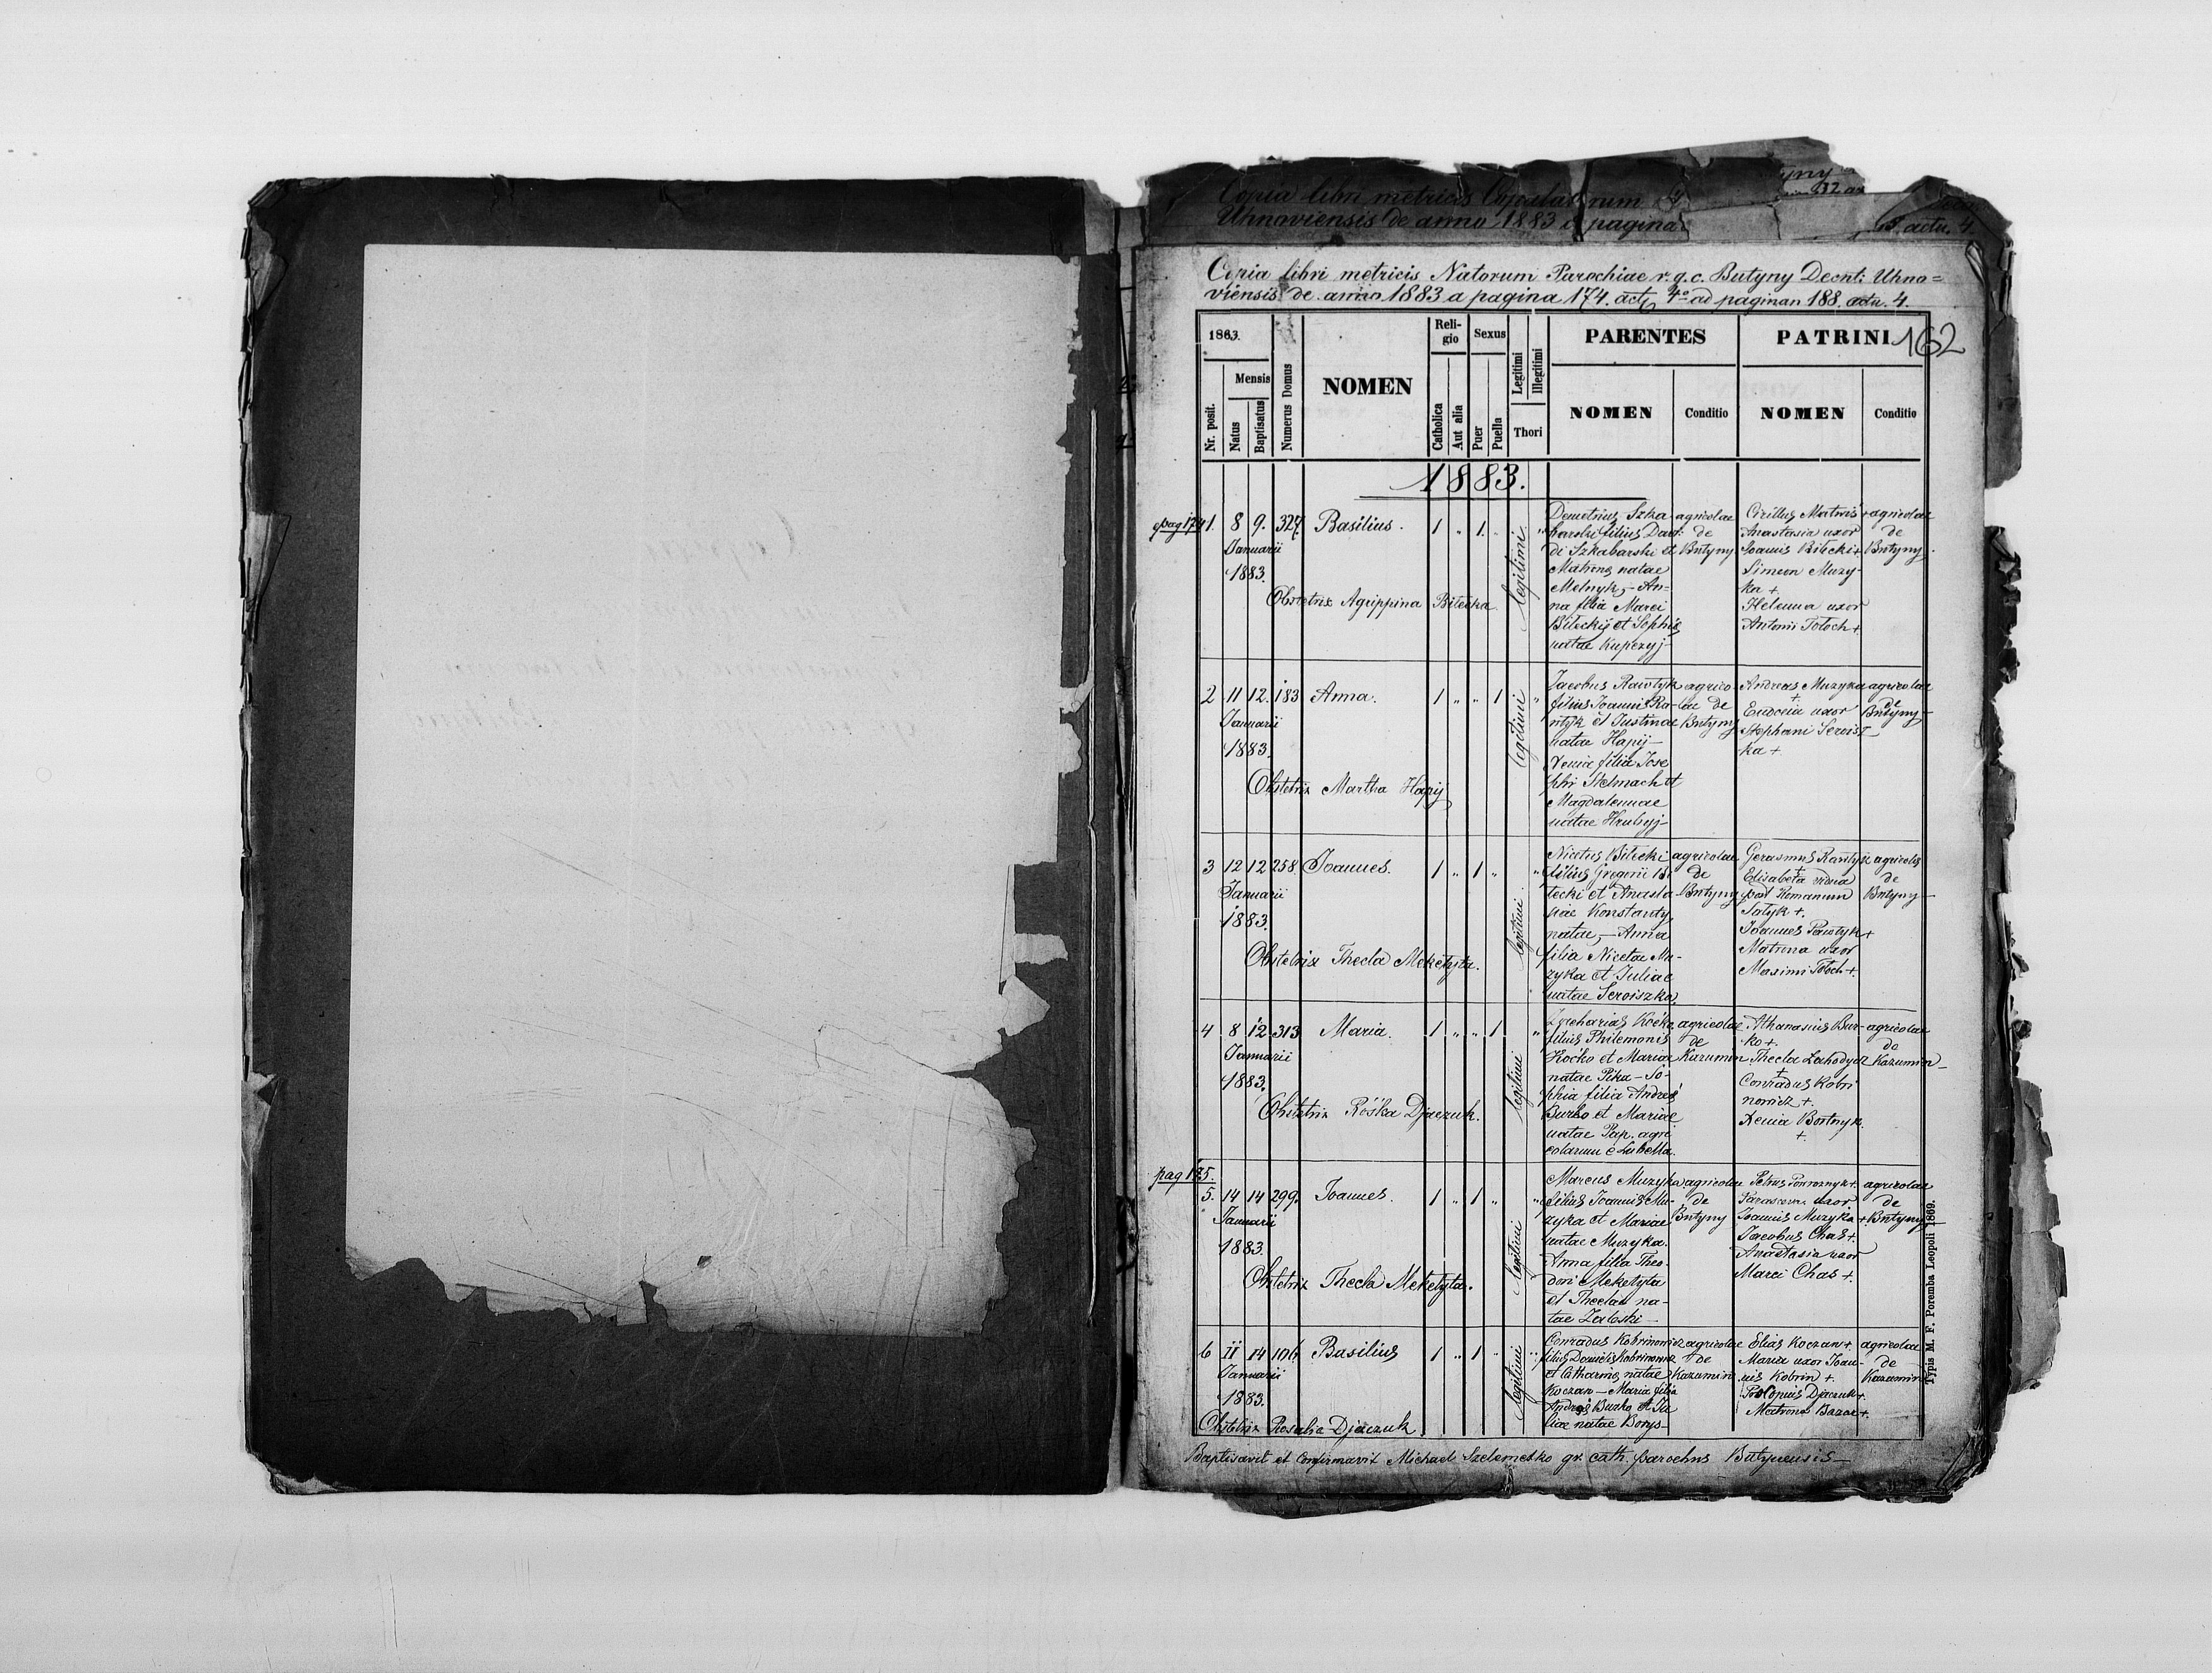 Copia libri metricis Copulatorum
Uhnoviensis de anno 1883 a pagina
8. actu. 4.
Copia libri metricis Natorum Parochiae r.g.c. Butyny Decnt: Uhno=
viensis de anno 1883 a pagina 174. actu 4º ad paginan 188. actu. 4.
162
1883.
Nr. posit.
Mensis
Natus
Baptisatus
Numerus Domus
NOMEN
Reli-
gio
Catholica
Aut alia
Sexus
Puer
Puella
Legitimi
Illegitimi
Thori
PARENTES
NOMEN
Conditio
PATRINI
NOMEN
Conditio
1883.
pag 174
1. 8 9. 327. Basilius. 1 " 1. "
Januarii
1883.
Obstetrix Agrippina Bilecka
legitimi
Demetrius Szka-
barski filius Davi-
di Szkabarski et
Matrona natae
Melnyk, - An-
na filia Marci
Bilecki et Sophia
natae Kupczyj-
agricolae
de
Butyny
Cirillus Matwis +
Anastasia uxor
Joannis Bilecki +
Simeon Muzy-
ka +
Helenna uxor
Antonii Toloch +
agricolae
de
Butyny.
2 11 12. 183 Anna. 1 " " 1 "
Januarii
1883.
Obstetrix Martha Hapij
legitimi
Jacobus Rawlyk
filius Joannis Ra-
wlyk et Justinae
natae Hapij-
Xenia filia Jose
phi Stelmach et
Magdalennae
natae Hrubyj-
agrico-
lae de
Butyny
Andreas Muzyka
+
Eudocia uxor
Stephani Serois-
ka +
agricolae
de
Butyny-
3 12 12 258. Joannes. 1 " 1 " "
Januarii
1883.
Obstetrix Thecla Meketyta.
legitimi
Nicetus Bilecki
filius Gregorii Bi
lecki et Anasta-
siae Konstanty
natae, - Anna
filia Nicetae Mu-
zyka et Juliae
natae Seroiszka
agricolae
de
Butyny
Gerasmus Rawlyk
+
Elisabeta vidua
post Romanum
Salyk +.
Joannes Pawlyk +
Matrona uxor
Maximi Toloch +.
agricolae
de
Butyny-
4 8 12 313 Maria. 1 " " 1 "
Januarii
1883.
Obstetrix Róśka Djaczuk.
legitimi
Zacharias Koćko
filius Philemonis
Koćko et Mariae
natae Pika - So-
phia filia Andreas
Burko et Mariae
natae Pap. agri
colarum e Lubella.
agricolae
de
Kazumin
Athanasius Bur-
ko +.
Thecla Lahodycz
+
Conradus Kobri
nowicz +.
Xenia Bortnyk.
+.
agricolae
de
Kazumin-
pag 175.
5. 14 14 299. Joannes. 1 " 1 " "
Januarii
1883.
Obstetrix Thecla Meketyta.
legitimi
Marcus Muzyka
filius Joannis Mu-
zyka et Mariae
natae Muzyka.
Anna filia Theo-
dori Meketyta
et Theclae na-
tae Zaloski-
agricolae
de
Butyny
Petrus +.
Parascevia uxor
Joannis Muzyka +
Jacobus Chas +.
Anastasia uxor
Marci Chas +.
agricolae
de
Butyny
6 11 14 106 Basilius 1 " 1 "
Januarii
1883.
Obstetrix Rosalia Djaczuk
legitimi
Conradus Kobrinowicz
filius Kobrinowicz
et Catharina natae
Koczan - Maria filia
Andreas Burko et Ju
liae natae Borys-
agricolae
de
Kazumin
Elias Koczan +.
Maria uxor Joan-
nis Kobrin +.
Procopius Djaczuk +.
Matrona Bazar +.
agricolae
de
Kazumin
Baptisavit et Confirmavit Michael Szelemetko gr. cath. parochus Butynensis-
Typis M. F. Poremba Leopoli 1869.